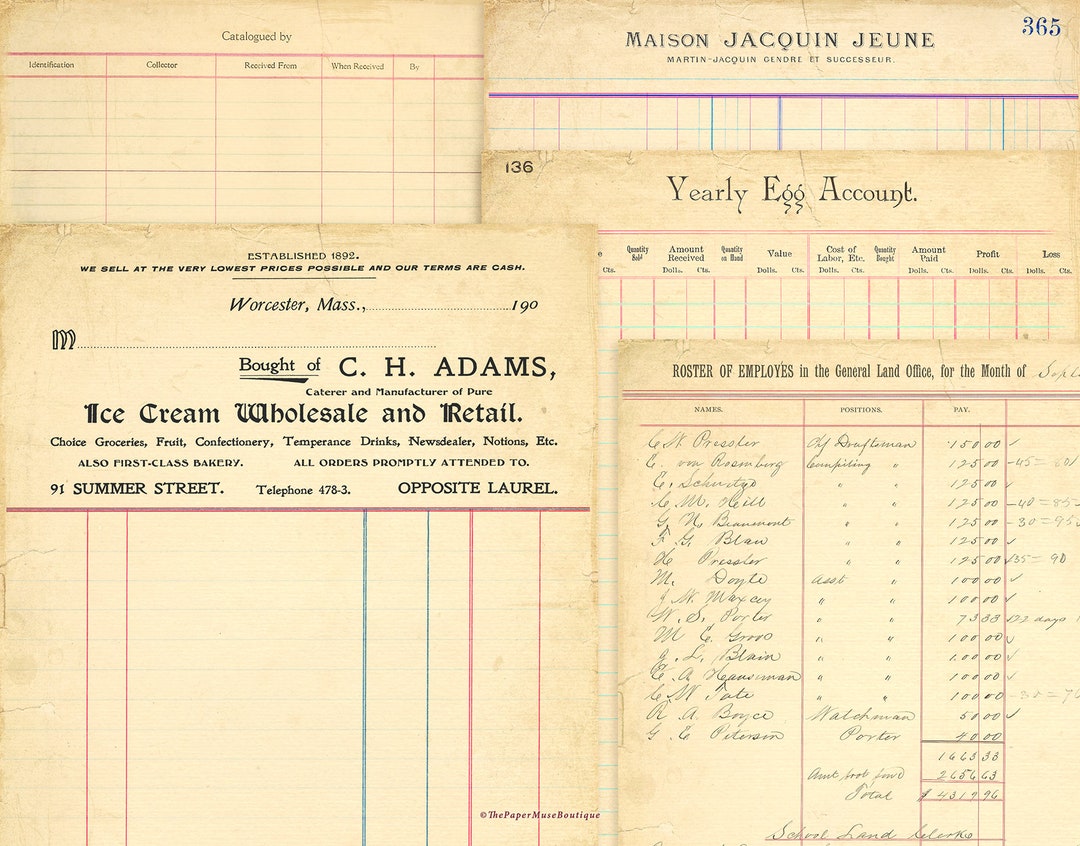 Catalogued by
Identification Collector Received From When Received By
365
MAISON JACQUIN JEUNE
MARTIN-JACQUIN GENDRE ET SUCCESSEUR.
136
Yearly Egg Account.
Quantity Sold Amount Received Quantity on Hand Value Cost of Labor, Etc. Quantity Bought Amount Paid Profit Loss
Cts. Dolls. Cts. Dolls. Cts. Dolls. Cts. Dolls. Cts. Dolls. Cts. Dolls. Cts.
ESTABLISHED 1892.
WE SELL AT THE VERY LOWEST PRICES POSSIBLE AND OUR TERMS ARE CASH.
Worcester, Mass., 190
M
Bought of C. H. ADAMS,
Caterer and Manufacturer of Pure
Ice Cream Wholesale and Retail.
Choice Groceries, Fruit, Confectionery, Temperance Drinks, Newsdealer, Notions, Etc.
ALSO FIRST-CLASS BAKERY. ALL ORDERS PROMPTLY ATTENDED TO.
91 SUMMER STREET. Telephone 478-3. OPPOSITE LAUREL.
ROSTER OF EMPLOYES in the General Land Office, for the Month of
NAMES. POSITIONS. PAY.
C. W. Pressler Draftsman 150 00
E. von Rosenberg Compiling " 125 00 -45=
" " 125 00
C. M. Hill " " 125 00 -40=85
G. N. Beaumont " " 125 00 -30=95
F. G. Blau " " 125 00
H Pressler " " 125 00 35=90
M. Doyle Asst " 100 00
J. W. Maxcey " " 100 00
W. S. Porter " " 73 33 22 days
M. E. Groos " " 100 00
J. L. Blain " " 100 00
E. A. Hausman " " 100 00
C. W. Tate " " 100 00
R. A. Boyce Watchman 50 00
G. E. Peterson Porter 40 00
1663 33
2656 63
Total $ 4319 96
School Land Clerks
©ThePaperMuseBoutique